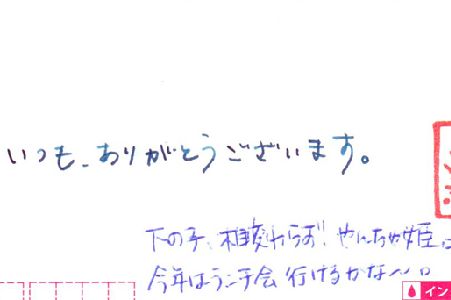 いつも、ありがとうございます。
下の子、相変わらず!やんちゃ姫。
今年はランチ会行けるかな〜。
イン